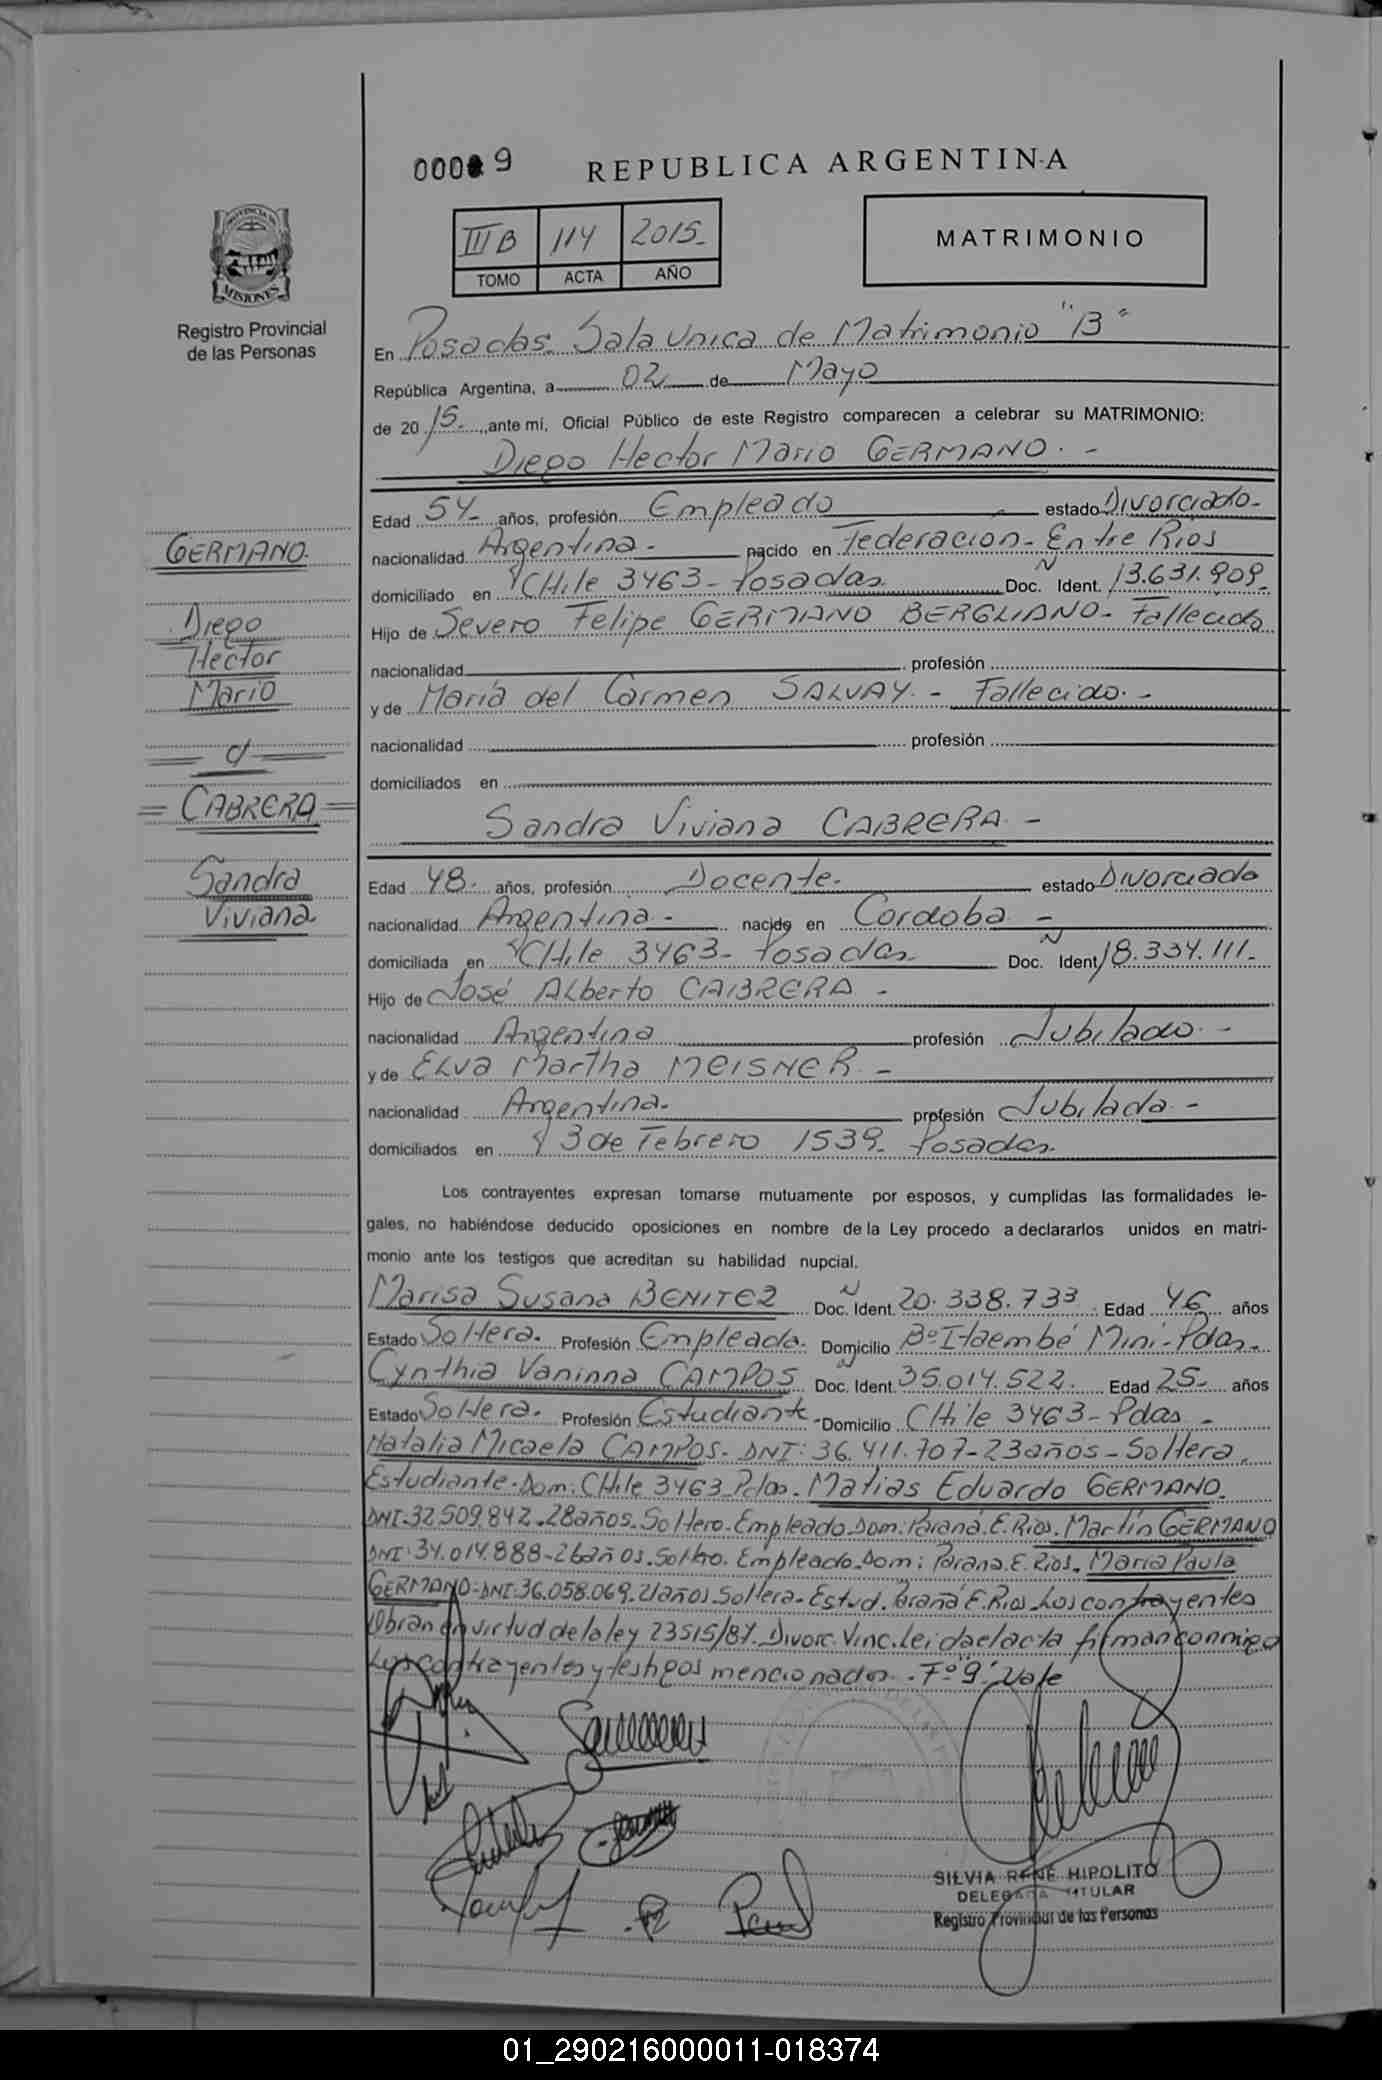 00009
REPUBLICA ARGENTINA
PROVINCIA DE
MISIONES
Registro Provincial
de las Personas
III B 114 2015.-
TOMO ACTA AÑO
MATRIMONIO
En Posadas. Sala Unica de Matrimonio "B"
República Argentina, a 02 de Mayo
de 2015.- ante mí, Oficial Público de este Registro comparecen a celebrar su MATRIMONIO:
Diego Hector Mario GERMANO.-
Edad 54.- años, profesión Empleado estado Divorciado.-
nacionalidad Argentina.- nacido en Federacion- Entre Rios
domiciliado en CHile 3463- Posadas. Doc. Ident. N 13.631.909.-
Hijo de Severo Felipe GERMANO BERGLIANO- Fallecido
nacionalidad profesión
y de Maria del Carmen SALVAY.- Fallecido.-
nacionalidad profesión
domiciliados en
Sandra Viviana CABRERA.-
Edad 48.- años, profesión Docente.- estado Divorciado
nacionalidad Argentina.- nacido en Cordoba.-
domiciliada en CHile 3463- Posadas. Doc. Ident N 18.334.111.-
Hijo de José Alberto CABRERA.-
nacionalidad Argentina profesión Jubilado.-
y de Elva Martha MEISNER.-
nacionalidad Argentina.- profesión Jubilada.-
domiciliados en 3 de Febrero 1539- Posadas.
GERMANO.
Diego
Hector
Mario
c/
= CABRERA =
Sandra
Viviana.
Los contrayentes expresan tomarse mutuamente por esposos, y cumplidas las formalidades le-
gales, no habiéndose deducido oposiciones en nombre de la Ley procedo a declararlos unidos en matri-
monio ante los testigos que acreditan su habilidad nupcial.
Marisa Susana BENITEZ Doc. Ident. N 20.338.733 Edad 46 años
Estado Soltera. Profesión Empleada. Domicilio Bº Itaembé Mini-Pdas.-
Cynthia Vaninna CAMPOS Doc. Ident. N 35.014.522. Edad 25.- años
Estado Soltera. Profesión Estudiante- Domicilio CHile 3463- Pdas.-
Natalia Micaela CAMPOS- DNI: 36.411.707-23años-Soltera.
Estudiante-Dom: CHile 3463 Pdas. Matias Eduardo GERMANO.
DNI-32.509.842.28años.Soltero.Empleado Dom: Paraná.E.Rios. Martín GERMANO
DNI:34.014.888-26años.Soltero. Empleado-Dom: Parana.E.Rios. Maria Paula
GERMANO-DNI:36.058.069.21años.Soltera-Estud. Paraná E.Rios. Los contrayentes
Obran en virtud de la ley 23515/87. Divorc. Vinc. Leida el acta firman conmigo
Los contrayentes y testigos mencionados.-Fº"9" Vale
SILVIA RENE HIPOLITO
DELEGADA TITULAR
Registro Provincial de las Personas
01_290216000011-018374